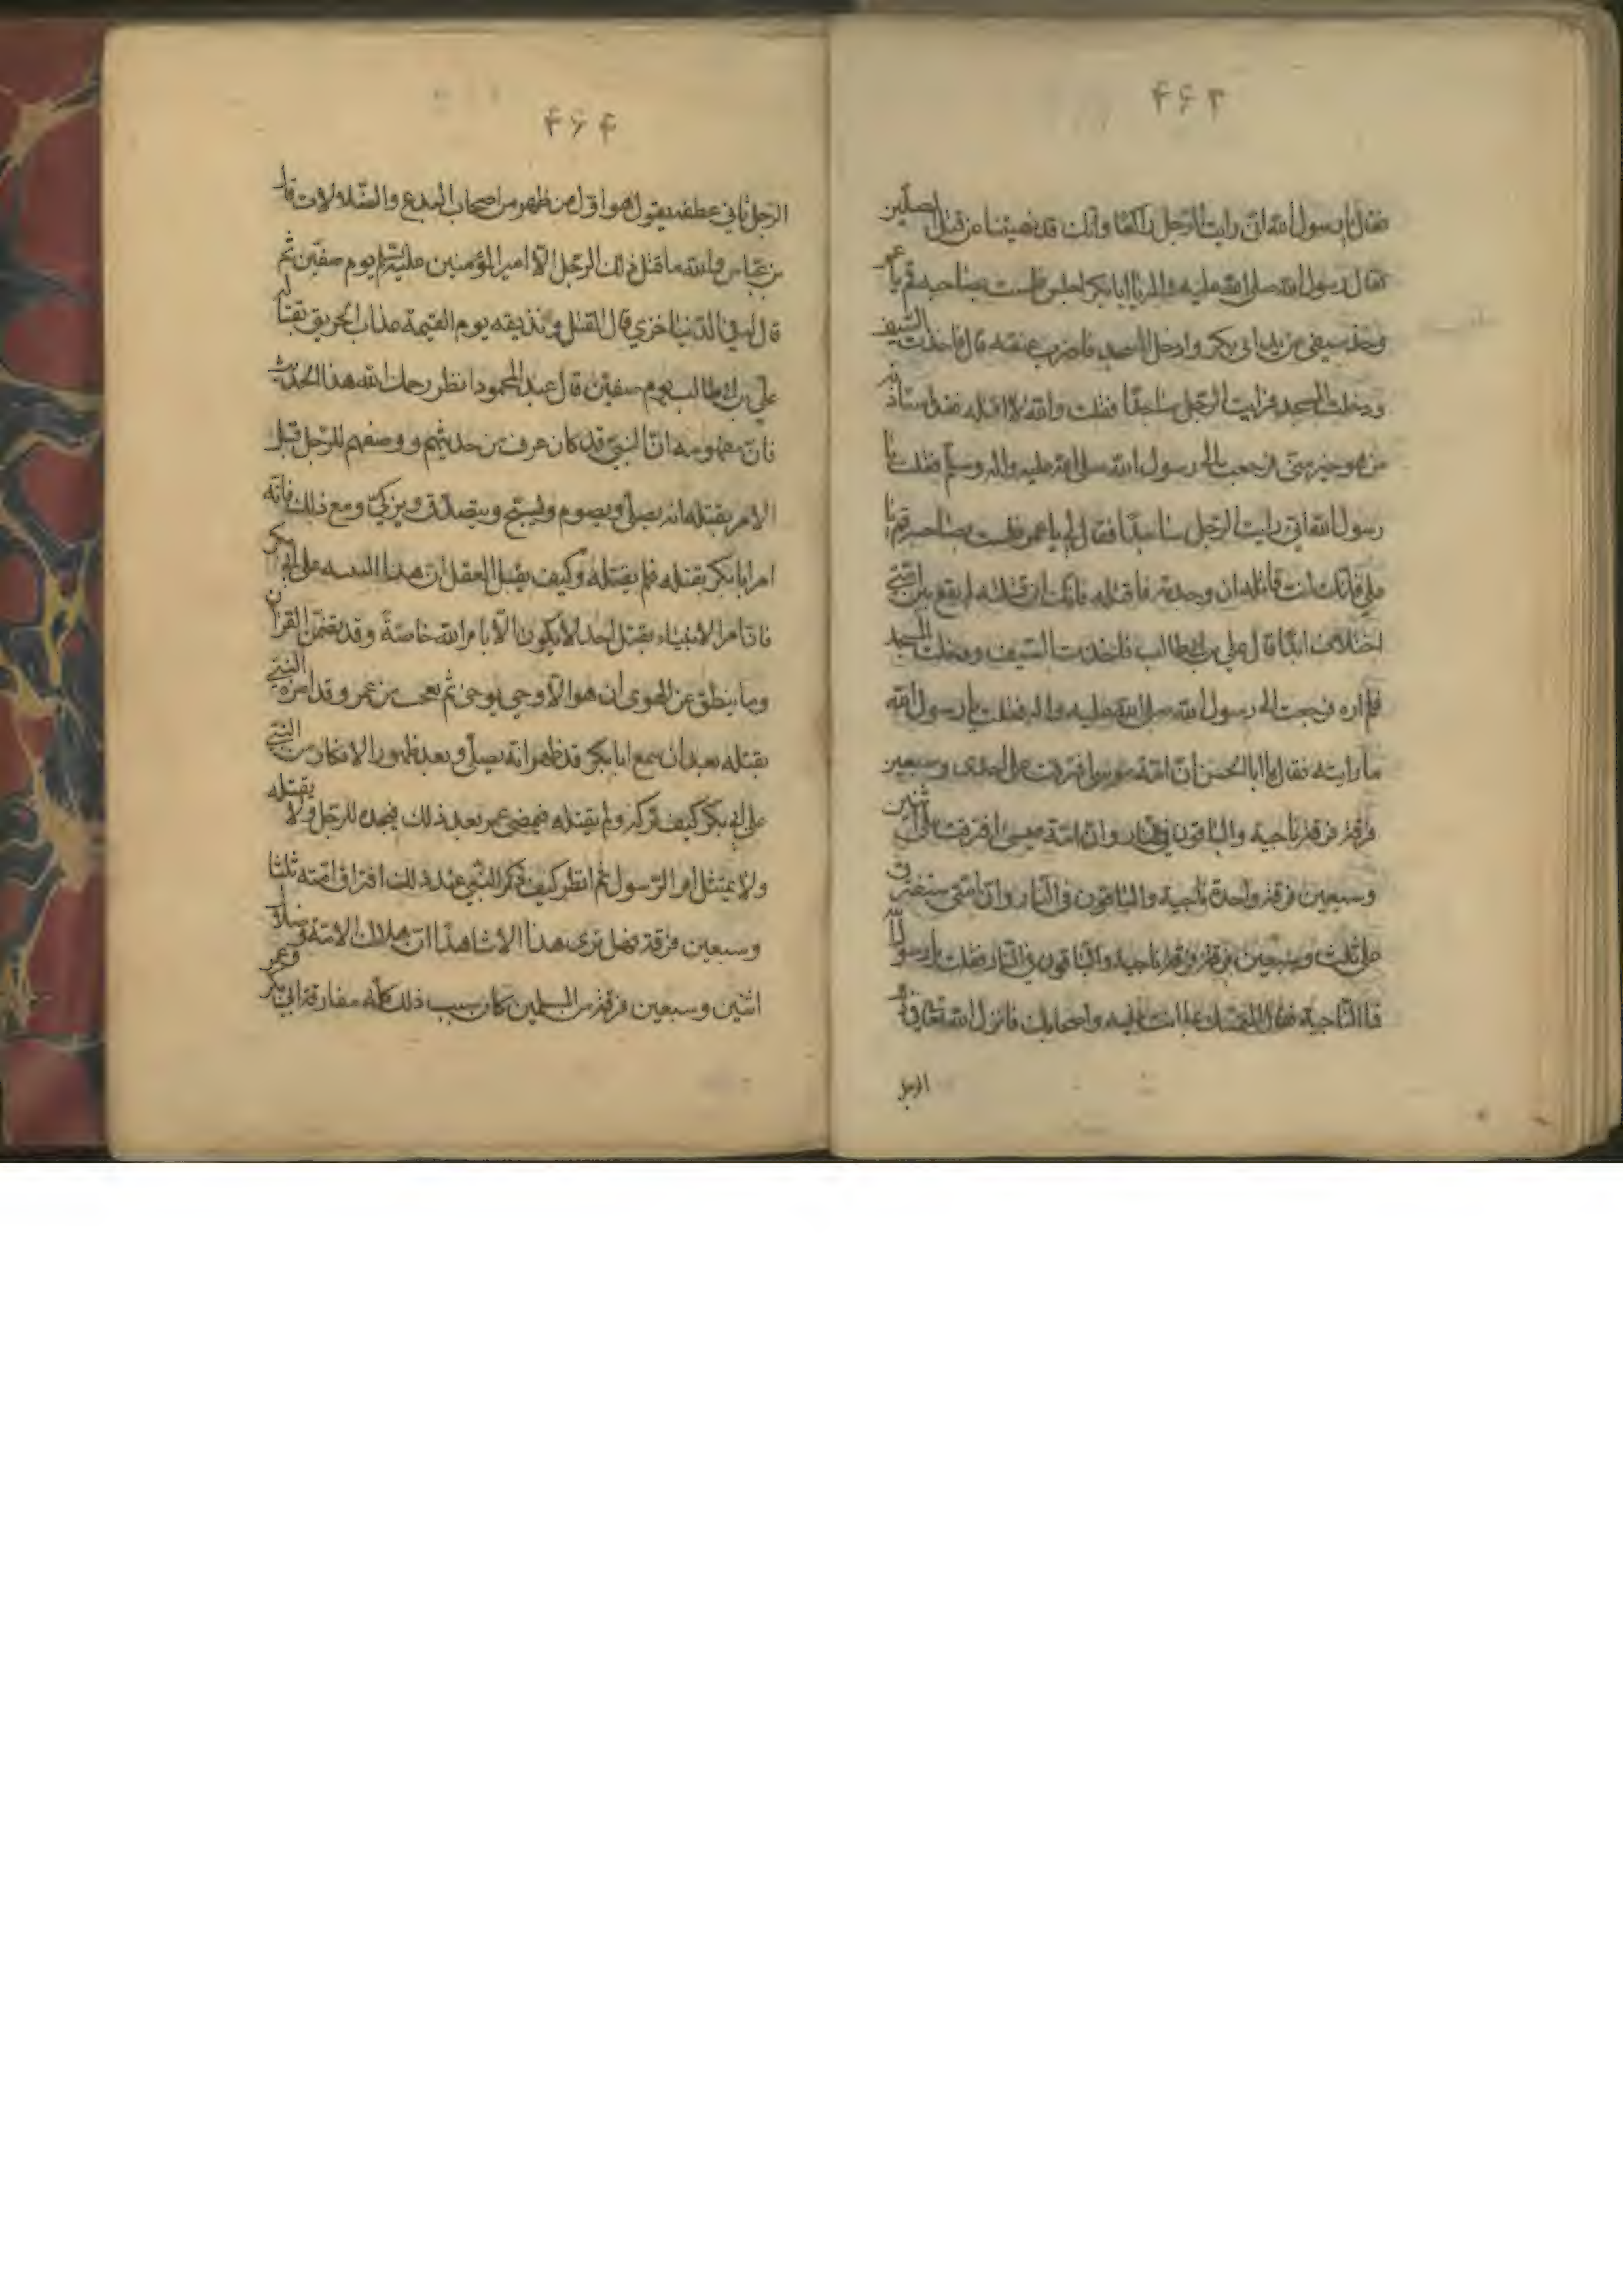 ۴۶۳
فقال يا رسول الله انى رايت الرجل راكعا وانك قد نهيتنا عن قتل المصلين
فقال رسول الله صلى الله عليه واله يا ابا بكر اجلس فلست بصاحبه قم يا عمر
وخذ سيفى من يد ابى بكر وادخل المسجد فاضرب عنقه قال فاخذت السيف
ودخلت المسجد فرايت الرجل ساجدا فقلت والله لا اقتله فقد استاذنه
من هو خير منى فرجعت الى رسول الله صلى الله عليه واله وسلم فقلت يا
رسول الله انى رايت الرجل ساجدا فقال لى يا عمر فلست بصاحبه قم يا
على فانك انت قاتله ان وجدته فاقتله فانك ان قتلته لم يقع بين امتى
اختلاف ابدا قال على بن ابى طالب فاخذت السيف ودخلت المسجد
فلم اره فرجعت الى رسول الله صلى الله عليه واله فقلت يا رسول الله
ما رايته فقال يا ابا الحسن ان امة موسى افترقت على احدى وسبعين
فرقة فرقة ناجية والباقون فى النار وان امة عيسى افترقت على اثنين
وسبعين فرقة واحدة ناجية والباقون فى النار وان امتى ستفترق
على ثلث وسبعين فرقة فرقة ناجية والباقون فى النار فقلت يا رسول الله
فما الناجية فقال المتمسك بما انت عليه واصحابك فانزل الله تعالى فى ذلك
الرجل
۴۶۴
الرجل ثانى عطفه يقول هو اول من ظهر من اصحاب البدع والضلالات قال
بن عباس والله ما قتل ذلك الرجل الا امير المؤمنين عليه السلام يوم صفين ثم
قال له فى الدنيا خزى قال القتل ونذيقه يوم القيمة عذاب الحريق بقتاله
على بن ابى طالب يوم صفين قال عبد المحمود انظر رحمك الله هذا الحديث
فان مفهومه ان النبى قد كان عرف من حديثهم ووصفهم للرجل قبل
الامر بقتله انه يصلى ويصوم ويسبح ويتصدق ويزكى ومع ذلك فانه
امر ابا بكر بقتله فلم يقتله وكيف يقبل العقل ان هذا على ابى بكر
فان امر الانبياء بقتل احد لا يكون الا بامر الله خاصة وقد تضمن القران
وما ينطق عن الهوى ان هو الا وحى يوحى ثم تعجب من عمر وقد امره النبى
بقتله بعد ان سمع ابا بكر قد ظهر انه يصلى وبعد ظهور الانكار من النبى
على ابى بكر كيف تركه ولم يقتله فمضى عمر بعد ذلك فيجده للرجل ولا يقتله
ولا يمتثل امر الرسول ثم انظر كيف ذكر النبى عند ذلك افتراق امته ثلثا
وسبعين فرقة فهل ترى هذا الا شاهدا ان هلاك الامة وضلال
اثنين وسبعين فرقة من المسلمين كان سبب ذلك كله مفارقة ابى بكر وعمر